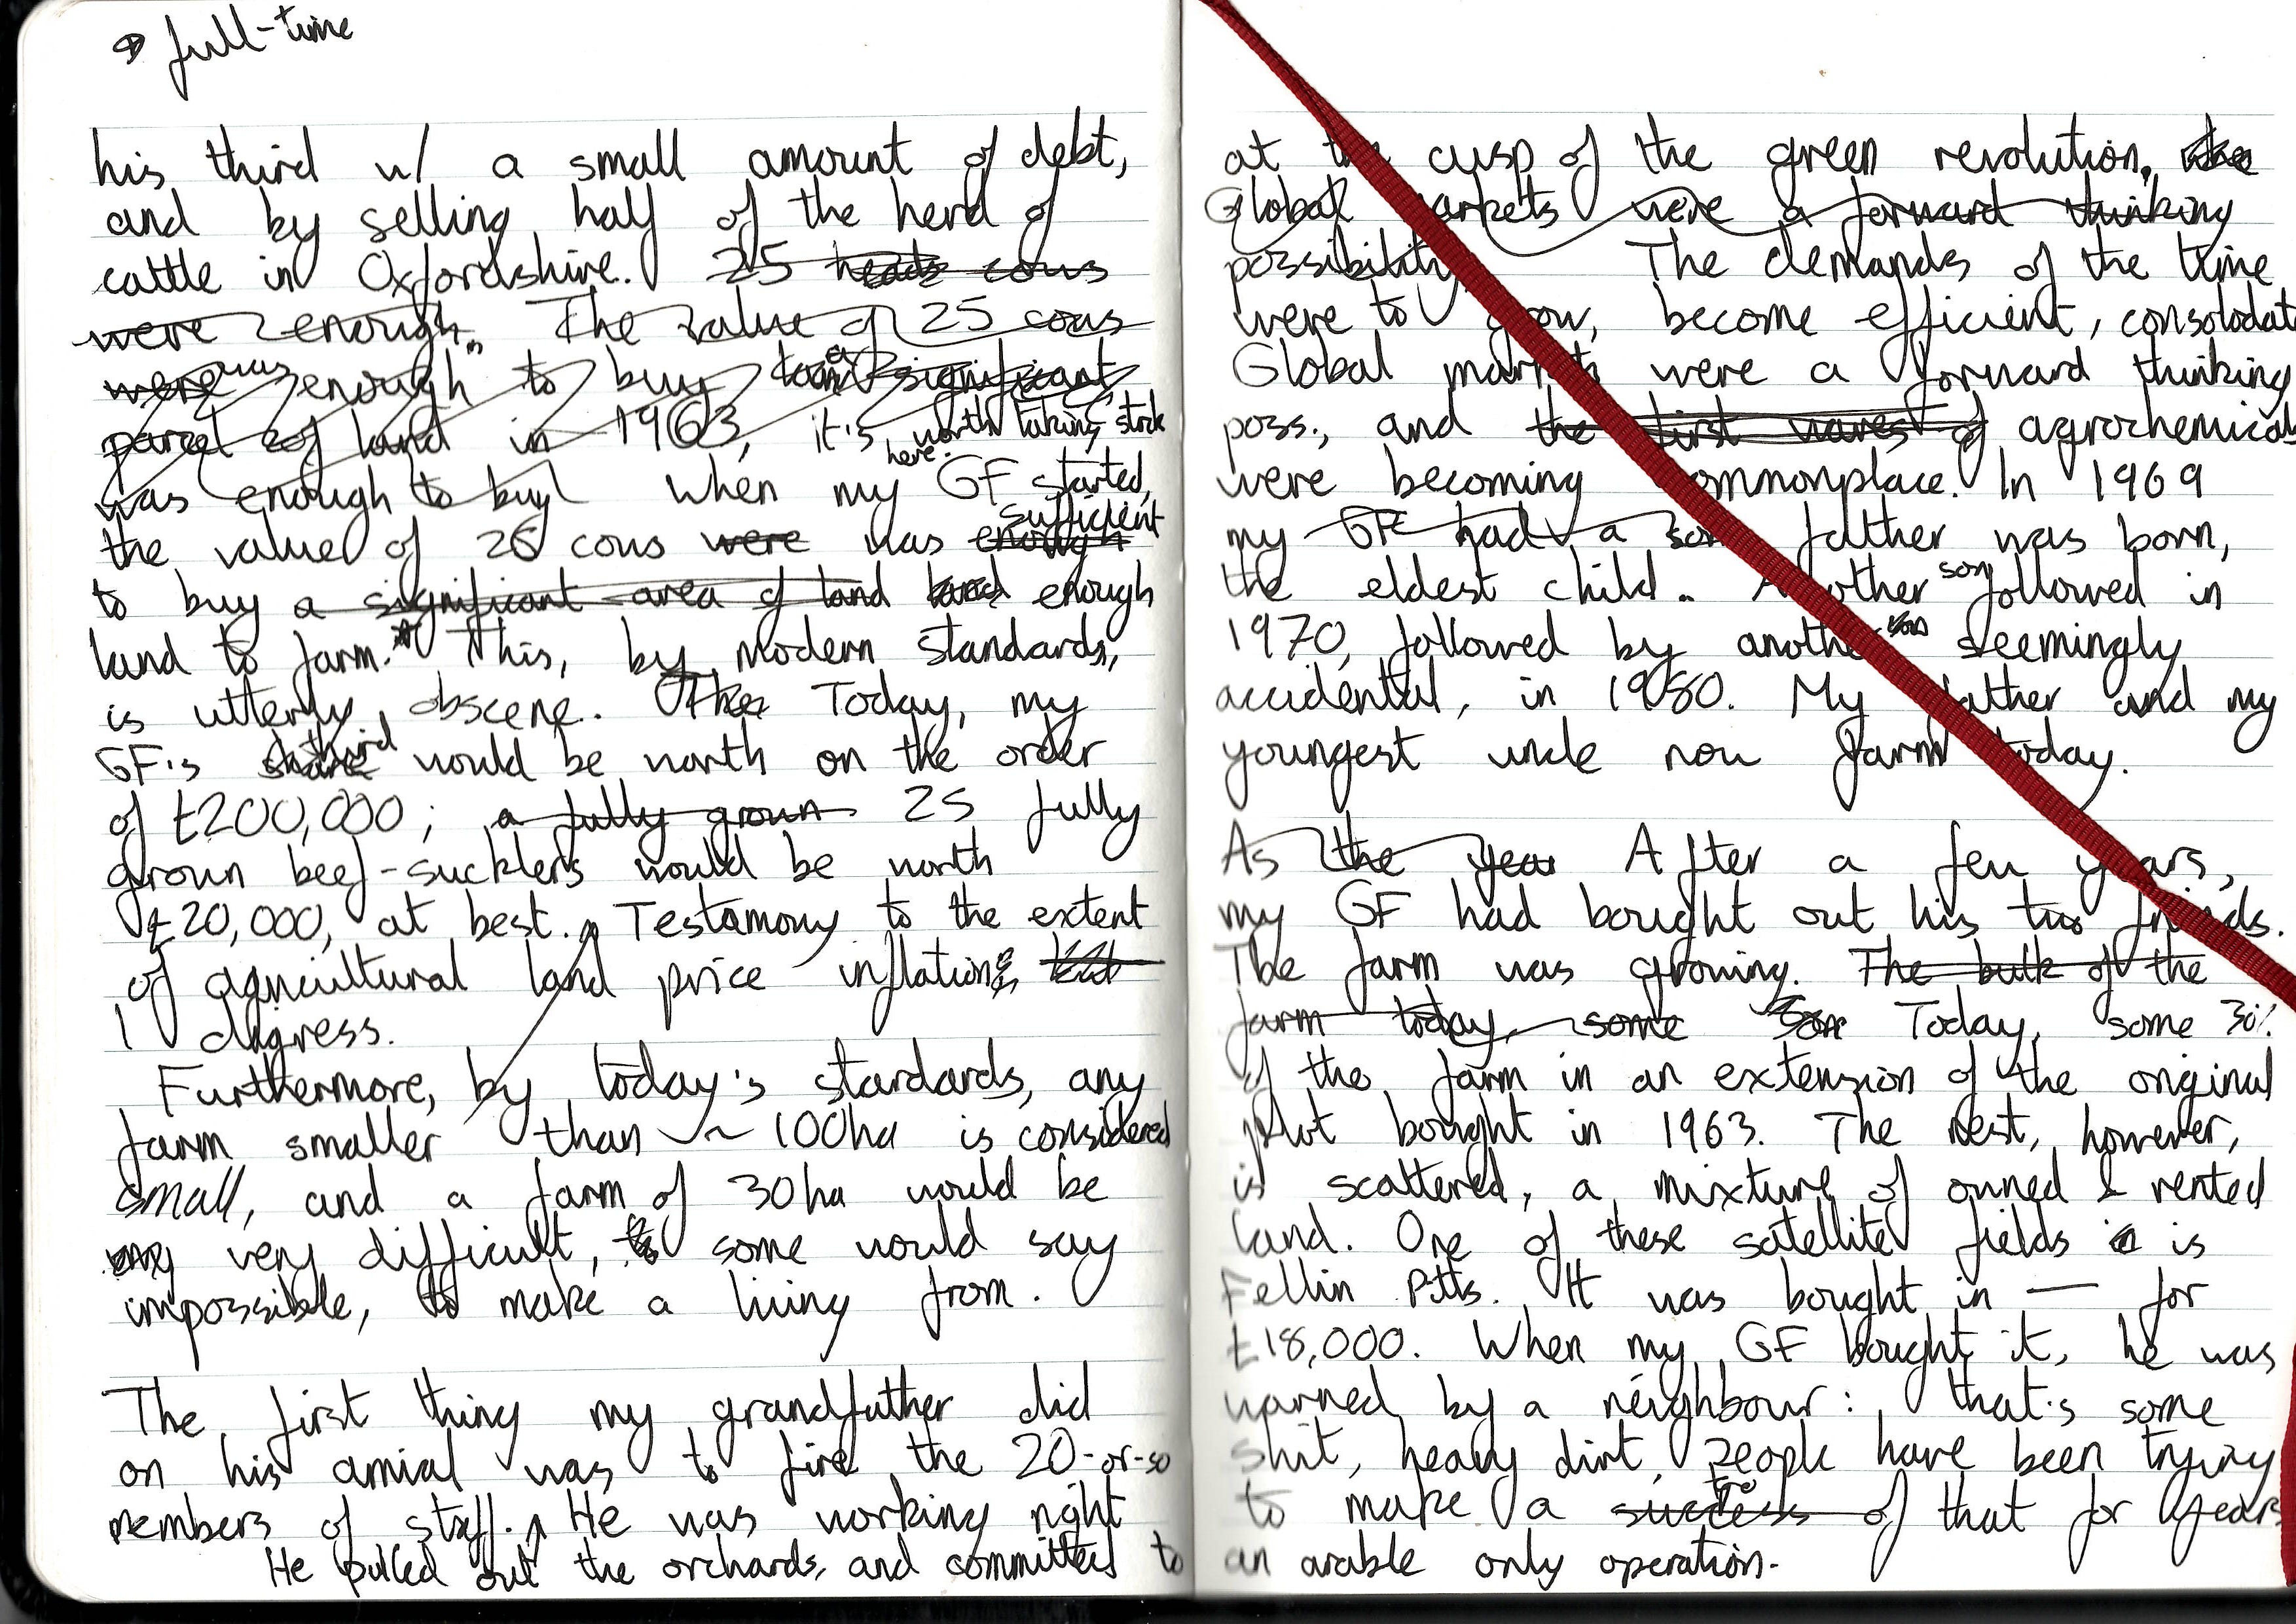 full-time
his third w/ a small amount of debt,
and by selling half of the herd of
cattle in Oxfordshire. 25 heads cows
were enough. The value of 25 cows
were was enough to buy a significant
parcel of land in 1963, it's worth taking stock
here.
was enough to buy When my GF started,
the value of 25 cows were was enough sufficient
to buy a significant area of land land enough
land to farm.* This, by modern standards,
is utterly obscene. The Today, my
GF's share third would be worth on the order
of £200,000; a fully grown 25 fully
grown beef-sucklers would be worth
£20,000, at best. Testamony to the extent
of agricultural land price inflation, but
I digress.
Furthermore, by today's standards, any
farm smaller than ~ 100ha is considered
small, and a farm of 30ha would be
very difficult, some would say
impossible, to make a living from.
The first thing my grandfather did
on his arrival was to fire the 20-or-so
members of staff. He was working right
He pulled out the orchards, and committed to
at the cusp of the green revolution, the
Global markets were a forward thinking
possibility The demands of the time
were to grow, become efficient, consolodate
Global markets were a forward thinking
poss., and the first waves of agrochemicals
were becoming commonplace. In 1969
my GF had a son father was born,
the eldest child. Another son followed in
1970, followed by another son seemingly
accidental, in 1980. My father and my
youngest uncle now farm today.
As the year After a few years,
my GF had bought out his two friends.
The farm was growing. The bulk of the
farm today, some Today, some 30%
of the farm in an extension of the original
plot bought in 1963. The rest, however,
is scattered, a mixture of owned & rented
land. One of these satellite fields is is
Fellin Pitts. It was bought in — for
£18,000. When my GF bought it, he was
warned by a neighbour: that's some
shit, heavy dirt, people have been trying
to make a success go of that for years
an arable only operation.